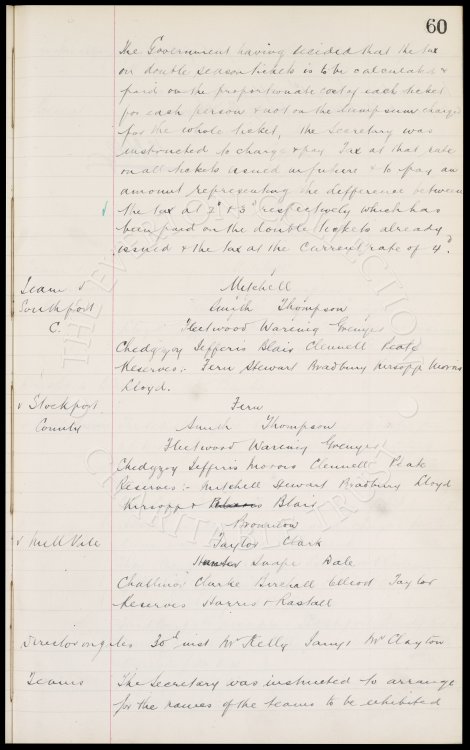 60
The Government having decided that the tax
on double season tickets is to be calculated &
paid on the proportionate cost of each ticket
for each person & not on the lump sum charged
for the whole ticket, the Secretary was
instructed to charge & pay Tax at that rate
on all tickets issued in future & to pay an
amount representing the difference between
the tax at 2d & 3d respectively which has
been paid on the double tickets already
issued & the tax at the current rate of 4d.
Team v Mitchell
Southport Smith Thompson
C. Fleetwood Wareing Grenyer
Chedgzoy Jefferis Blair Clennell Peate
Reserves:- Fern Stewart Bradbury Kirsopp Morris
Lloyd.
v Stockport Fern
County Smith Thompson
Fleetwood Wareing Grenyer
Chedgzoy Jefferis Morris Clennell Peate
Reserves:- Mitchell Stewart Bradbury Lloyd
Kirsopp & Blair
Brownlow
v Mill Taylor Clark
Dale
Challinor Clarke Birchall Elliott Taylor
Reserves Harris & Rastall
30th inst Mr Kelly Mr Clayton
Teams The Secretary was instructed to arrange
for the names of the teams to be exhibited
THE EVERTON COLLECTION
CHARITABLE TRUST